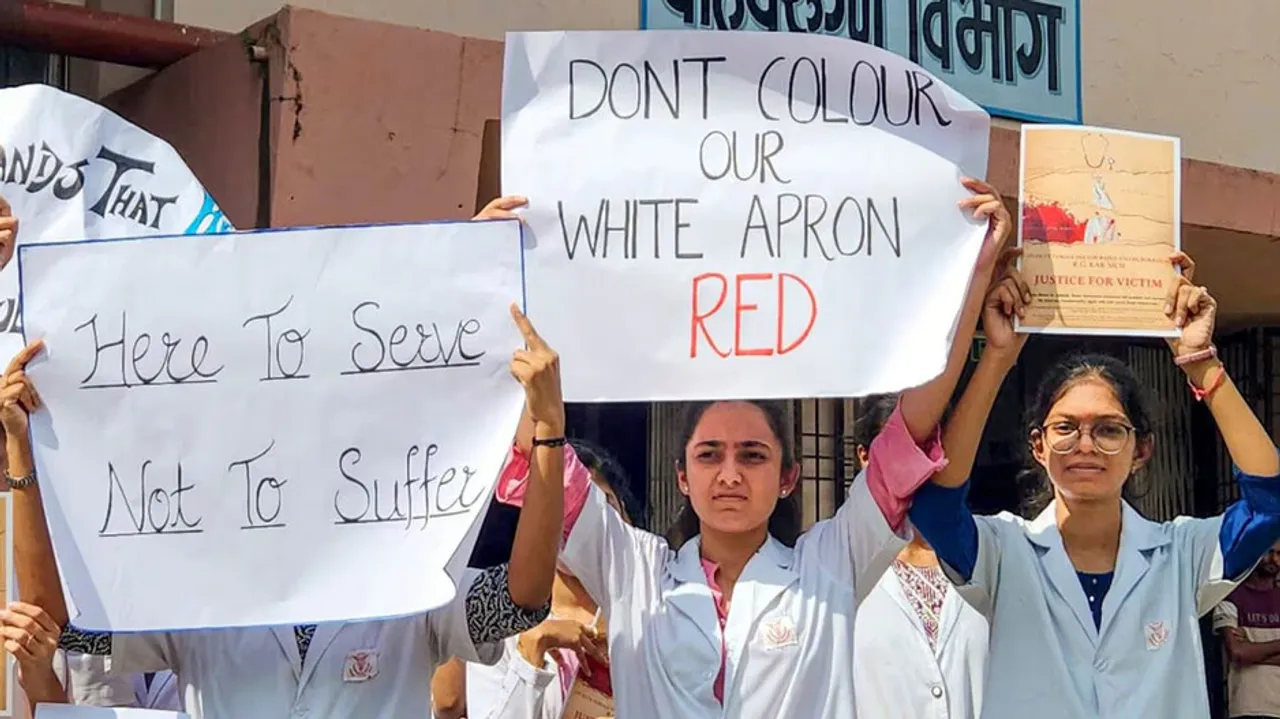 बाह्यरुग्ण विभाग
ANDS THAT
DONT COLOUR
OUR
WHITE APRON
RED
Here To Serve
Not To Suffer
R.G. KAR MCH
JUSTICE FOR VICTIM
LET'S